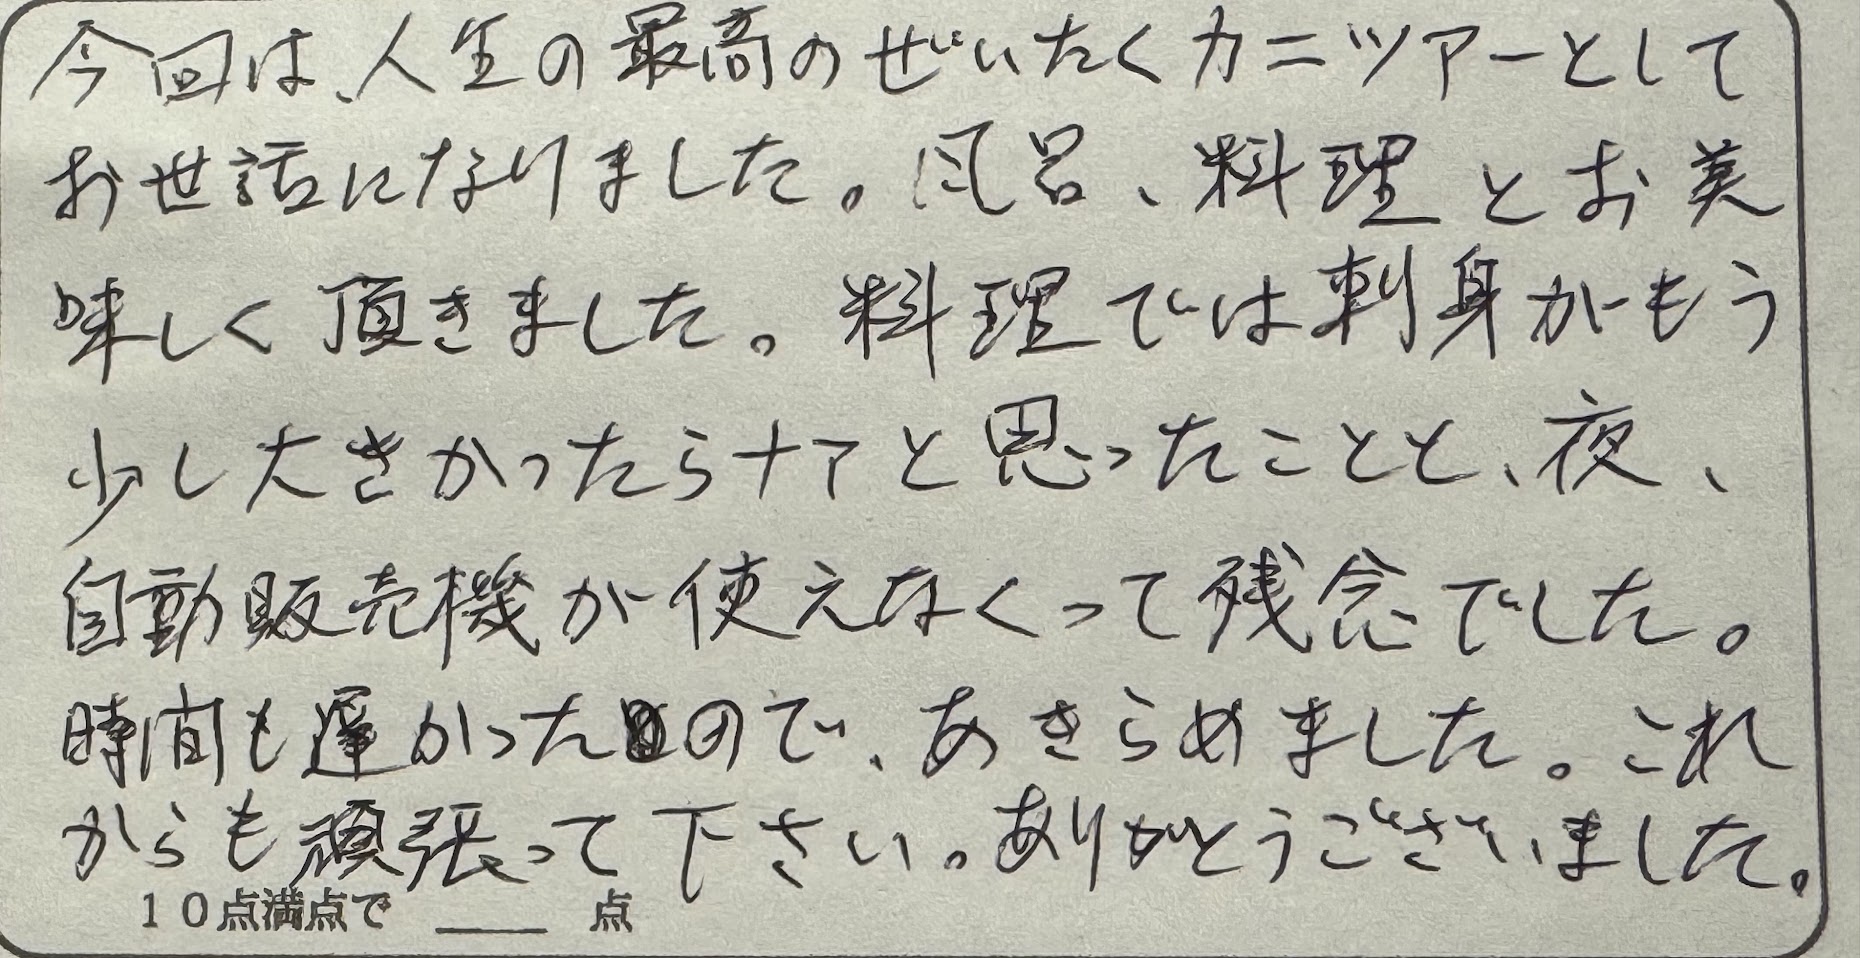 今回は、人生の最高のぜいたくカニツアーとして
お世話になりました。風呂、料理とお美
味しく頂きました。料理では刺身がもう
少し大きかったらナアと思ったことと、夜、
自動販売機が使えなくって残念でした。
時間も遅かったので、あきらめました。これ
からも頑張って下さい。ありがとうございました。
10点満点で ＿＿ 点